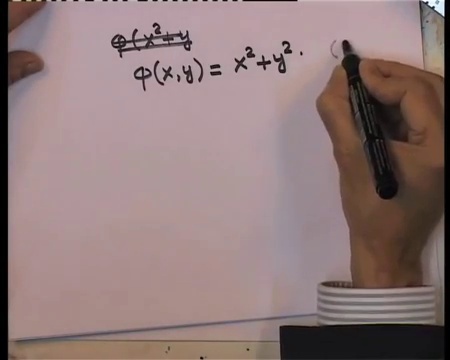 φ(x²+y
φ(x,y) = x²+y².